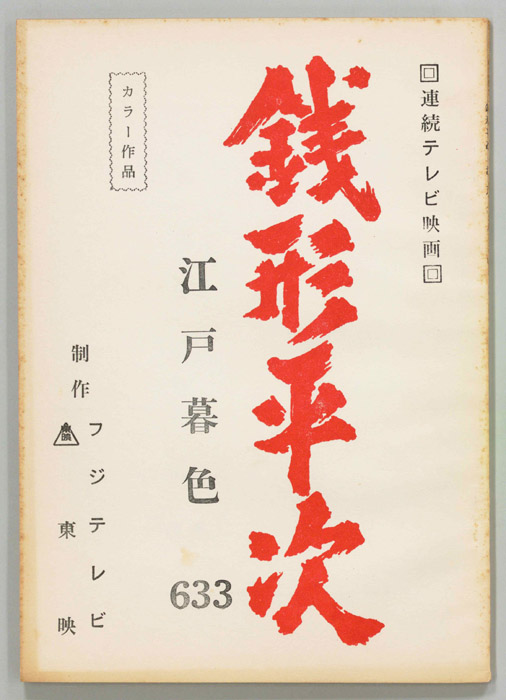 回連続テレビ映画回
銭形平次
江戸暮色
633
カラー作品
制作
フジテレビ
東映